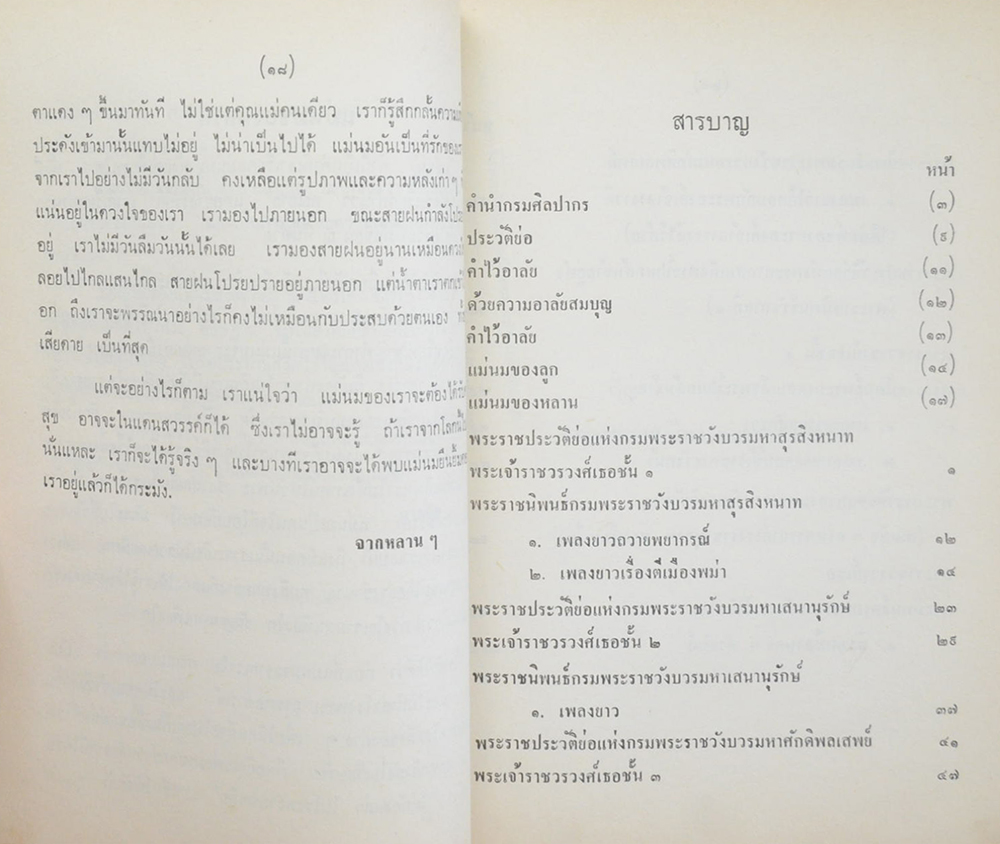 (๑๘)
ตาแดง ๆ ขึ้นมาทันที ไม่ใช่แต่คุณแม่คนเดียว เราก็รู้สึกกลั้นความ
ประดังเข้ามานั้นแทบไม่อยู่ ไม่น่าเป็นไปได้ แม่นมอันเป็นที่รักของ
จากเราไปอย่างไม่มีวันกลับ คงเหลือแต่รูปภาพและความหลังเก่าๆ
แน่นอยู่ในดวงใจของเรา เรามองไปภายนอก ขณะสายฝนกำลังโปร
อยู่ เราไม่มีวันลืมวันนั้นได้เลย เรามองสายฝนอยู่นานเหมือน
ลอยไปไกลแสนไกล สายฝนโปรยปรายอยู่ภายนอก แต่น้ำตาเราตก
อก ถึงเราจะพรรณนาอย่างไรก็คงไม่เหมือนกับประสบด้วยตนเอง
เสียดาย เป็นที่สุด
แต่จะอย่างไรก็ตาม เราแน่ใจว่า แม่นมของเราจะต้องได้รั
สุข อาจจะในแดนสวรรค์ก็ได้ ซึ่งเราไม่อาจจะรู้ ถ้าเราจากโลกนี้
นั่นแหละ เราก็จะได้รู้จริง ๆ และบางทีเราอาจจะได้พบแม่นมยืน
เราอยู่แล้วก็ได้กระมัง.
จากหลาน ๆ
สารบาญ
หน้า
คำนำกรมศิลปากร (๓)
ประวัติย่อ (๙)
คำไว้อาลัย (๑๑)
ด้วยความอาลัยสมบุญ (๑๒)
คำไว้อาลัย (๑๓)
แม่นมของลูก (๑๔)
แม่นมของหลาน (๑๗)
พระราชประวัติย่อแห่งกรมพระราชวังบวรมหาสุรสิงหนาท
พระเจ้าราชวรวงศ์เธอชั้น ๑ ๑
พระราชนิพนธ์กรมพระราชวังบวรมหาสุรสิงหนาท
๑. เพลงยาวถวายพยากรณ์ ๑๒
๒. เพลงยาวเรื่องตีเมืองพม่า ๑๔
พระราชประวัติย่อแห่งกรมพระราชวังบวรมหาเสนานุรักษ์ ๒๓
พระเจ้าราชวรวงศ์เธอชั้น ๒ ๒๙
พระราชนิพนธ์กรมพระราชวังบวรมหาเสนานุรักษ์
๑. เพลงยาว ๓๗
พระราชประวัติย่อแห่งกรมพระราชวังบวรมหาศักดิพลเสพย์ ๔๑
พระเจ้าราชวรวงศ์เธอชั้น ๓ ๔๗